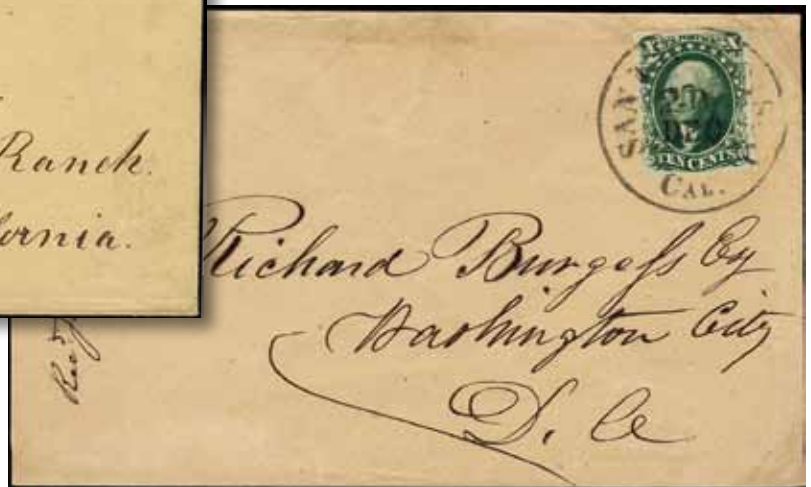 Ranch.
ornia.
SAN
DEC
TEN CENTS
CAL.
Richard Burgess Esq
Washington City
D. Ca